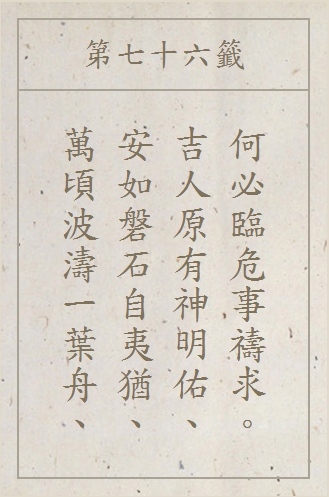 第七十六籤
萬頃波濤一葉舟、
安如磐石自夷猶、
吉人原有神明佑、
何必臨危事禱求。